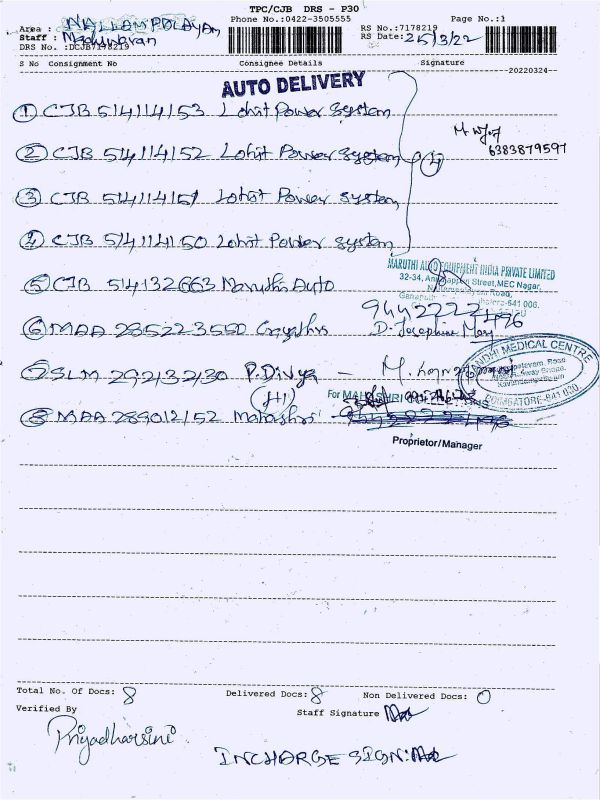 TPC/CJB DRS - P30
Phone No.:0422-3505555
Page No.:1
Area : NALLAMPALAYAM
RS No.:7178219
Staff :
RS Date: 25/3/22
DRS No. :DCJB7178219
S No Consignment No Consignee Details Signature
20220324
AUTO DELIVERY
① CJB 514114153 Lohit Power System
② CJB 514114152 Lohit Power System ④
6383879597
③ CJB 514114151 Lohit Power System
④ CJB 514114150 Lohit Power System
MARUTHI AUTO EQUIPMENT INDIA PRIVATE LIMITED
Street, MEC Nagar,
⑤ CJB 514132663 Maruthi Auto
9442222496
⑥ MAA 285223550 Gayathri D. Josephine Mary
MEDICAL CENTRE
COIMBATORE-641 030.
⑦ SLM 29213230 P. Divya -
(H)
For
⑧ MAA 289012152
Proprietor/Manager
Total No. Of Docs: 8 Delivered Docs: 8 Non Delivered Docs: 0
Verified By Staff Signature
Priyadharsini
INCHARGE SIGN: